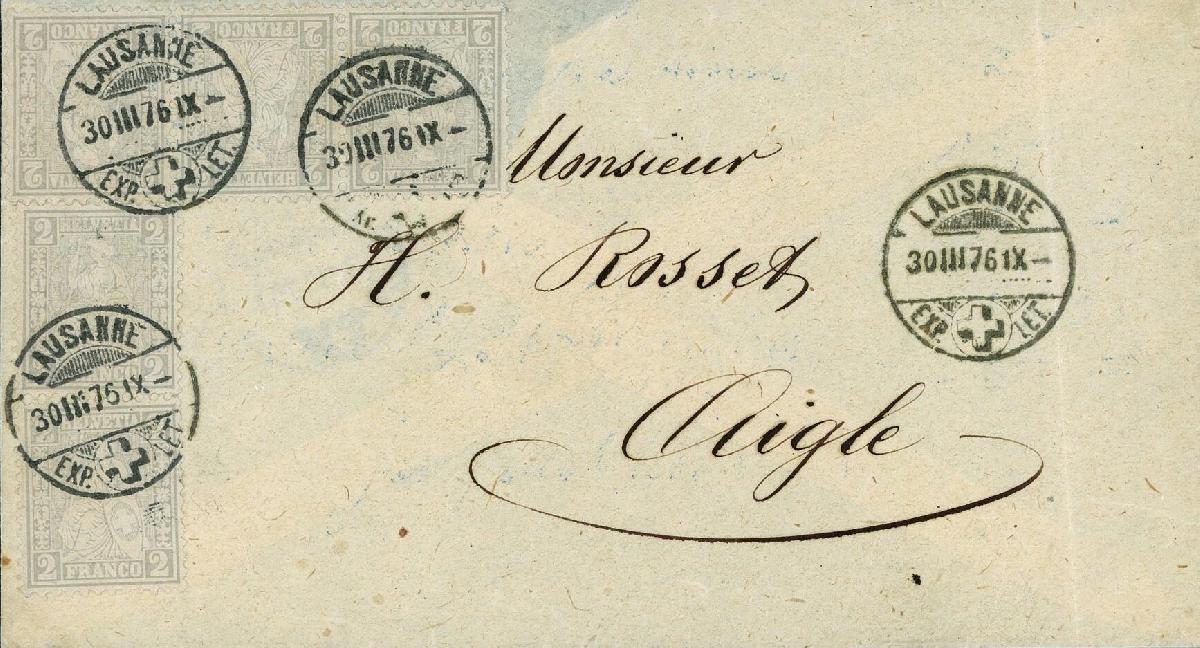 2 FRANCO 2
2 HELVETIA 2
2 FRANCO 2
2 FRANCO 2
LAUSANNE
30 III 76 IX –
EXP. LET.
LAUSANNE
30 III 76 IX –
Monsieur
H. Rosset
Aigle
LAUSANNE
30 III 76 IX –
EXP. LET.
2 HELVETIA 2
FRANCO 2
LAUSANNE
30 III 76 IX –
EXP. LET.
HELVETIA
2 FRANCO 2